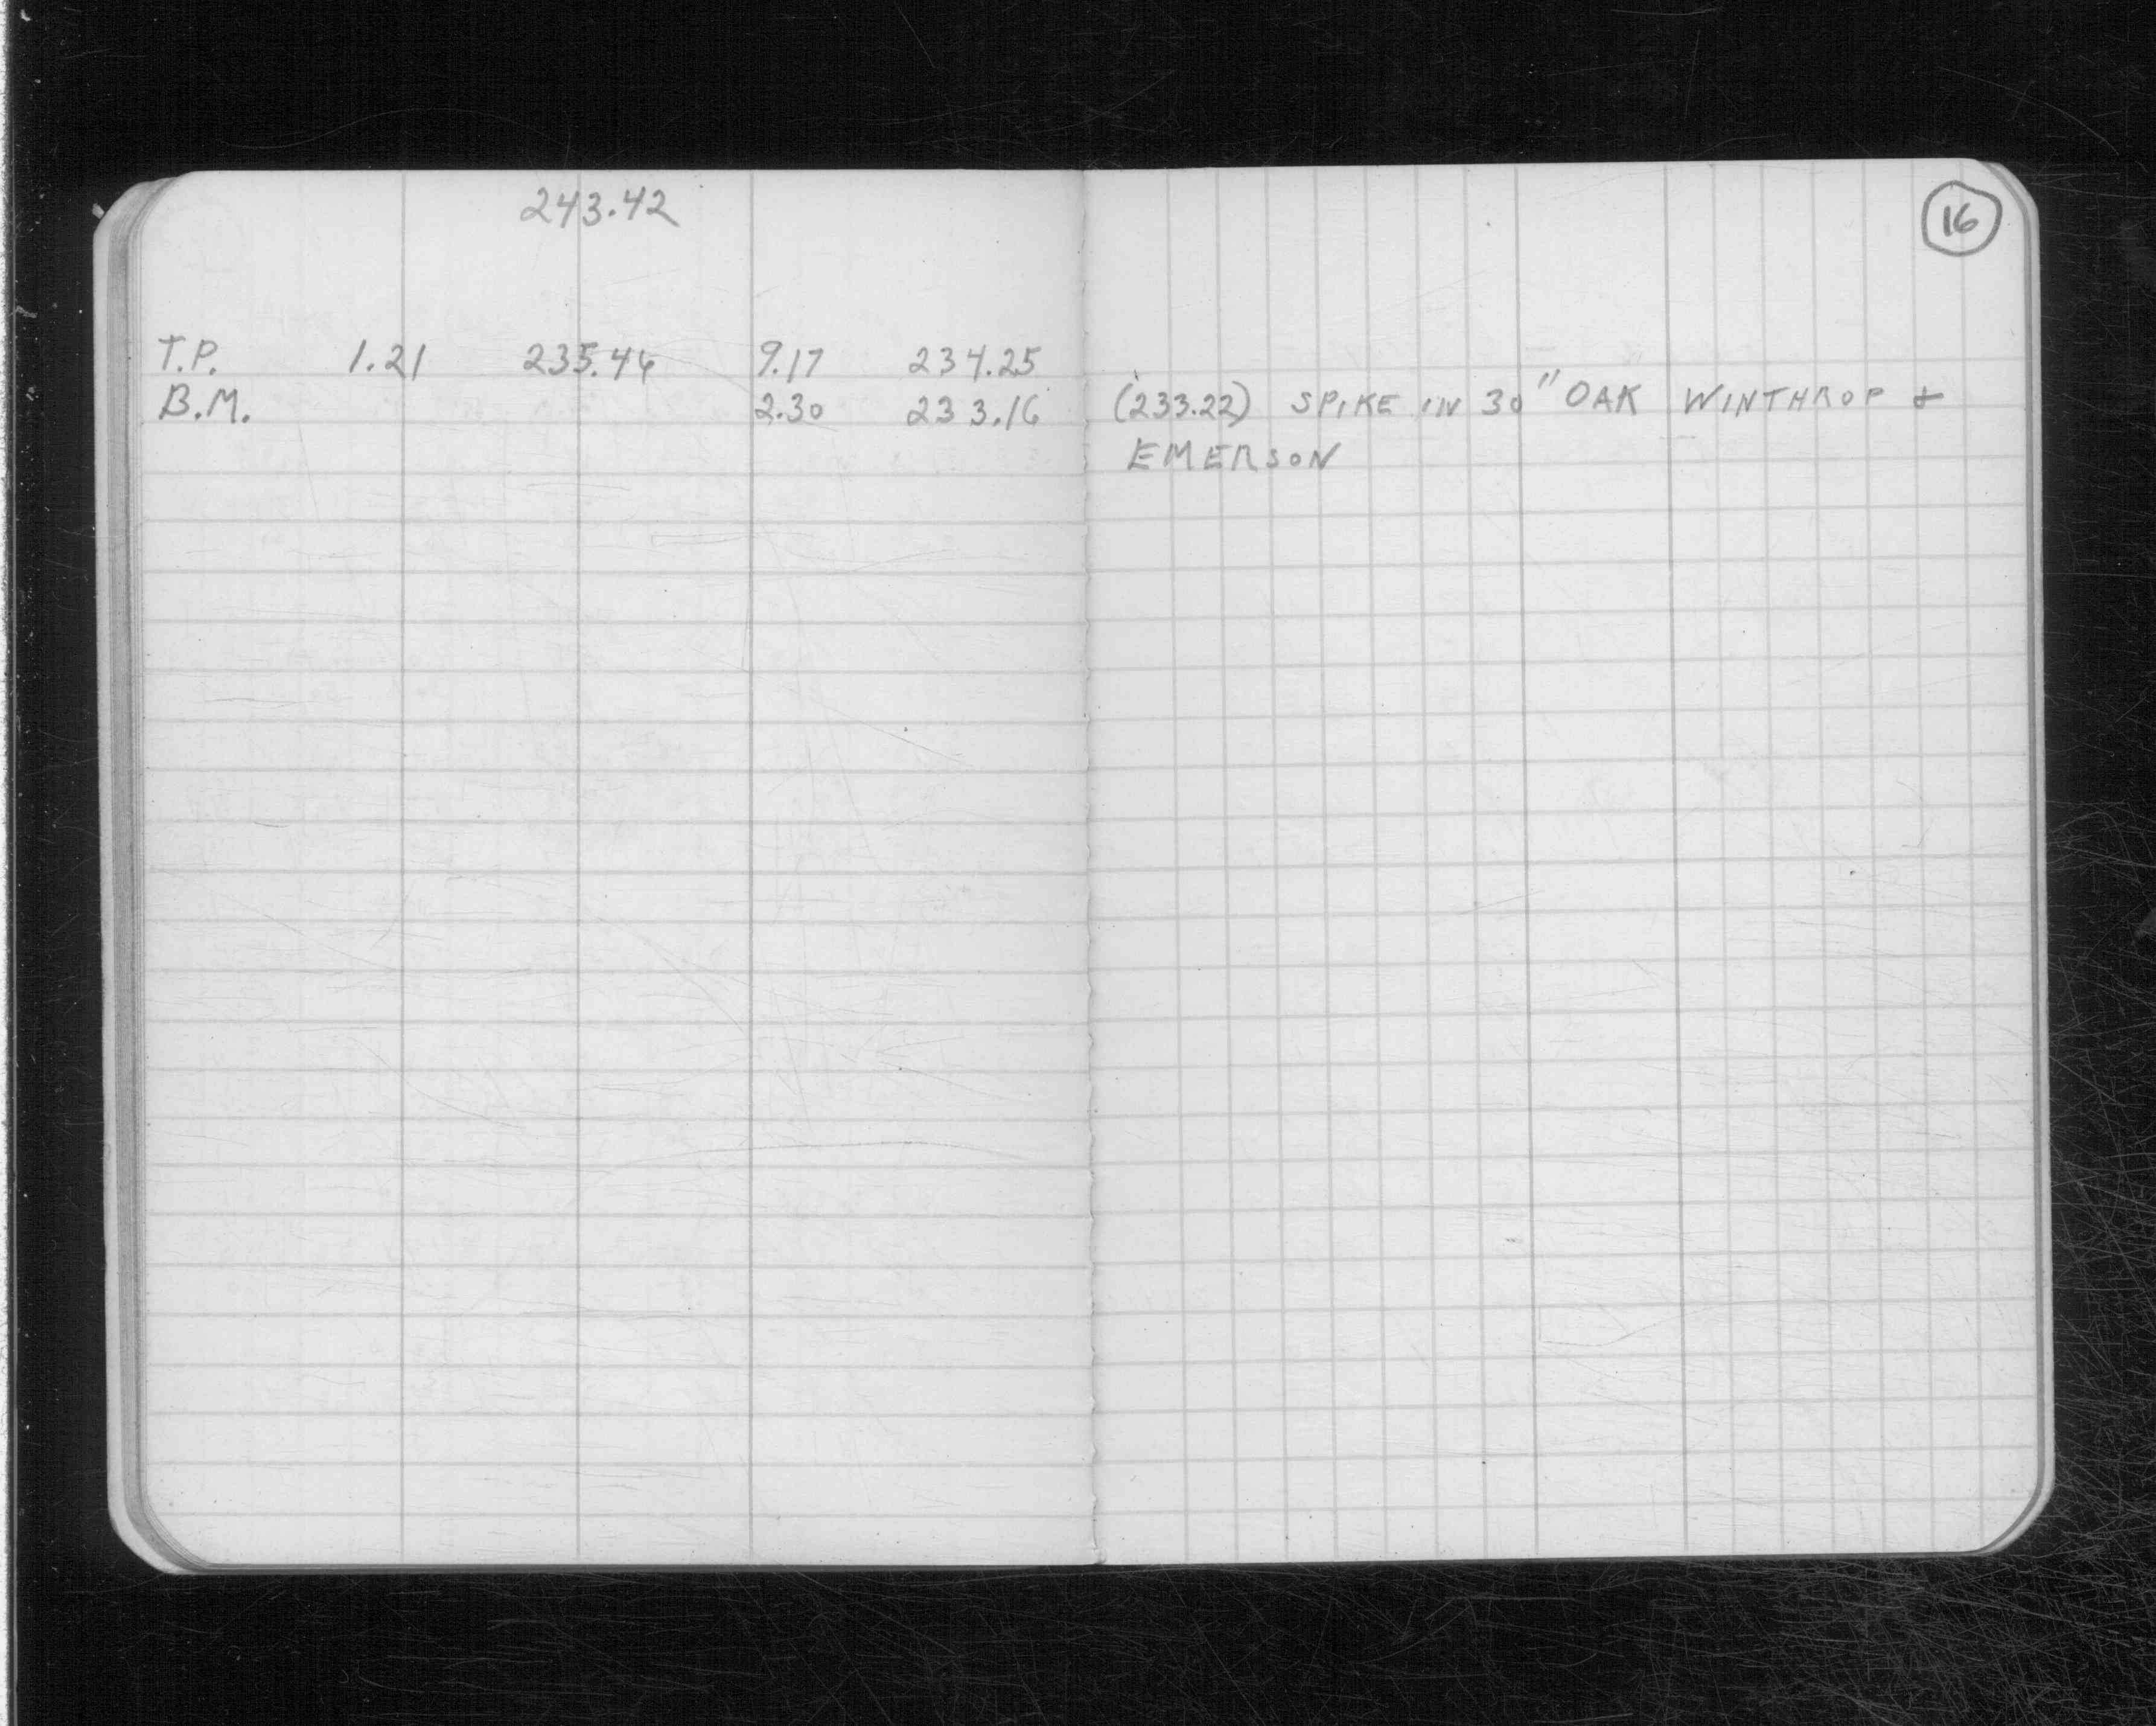 243.42
16
T.P. 1.21 235.46 9.17 234.25
B.M. 2.30 233.16 (233.22) SPIKE IN 30" OAK WINTHROP &
EMERSON